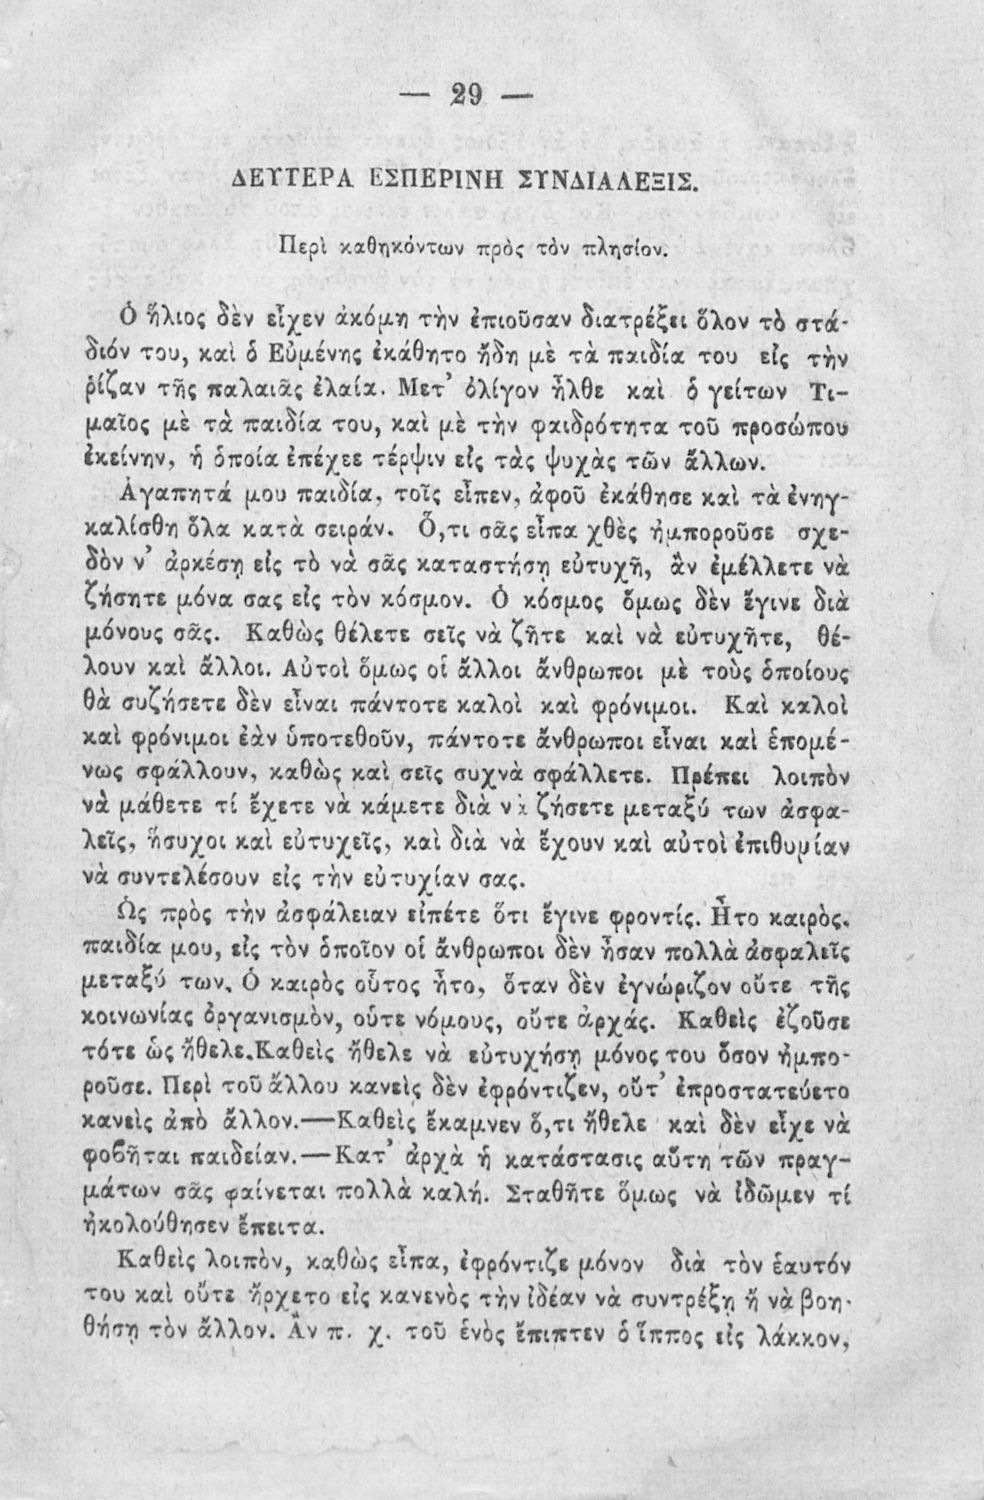 — 29 —
ΔΕΥΤΕΡΑ ΕΣΠΕΡΙΝΗ ΣΥΝΔΙΑΛΕΞΙΣ.
Περὶ καθηκόντων πρὸς τὸν πλησίον.
Ὁ ἥλιος δὲν εἶχεν ἀκόμη τὴν ἐπιοῦσαν διατρέξει ὅλον τὸ στά-
διόν του, καὶ ὁ Εὐμένης ἐκάθητο ἤδη μὲ τὰ παιδία του εἰς τὴν
ῥίζαν τῆς παλαιᾶς ἐλαία. Μετ’ ὀλίγον ἦλθε καὶ ὁ γείτων Τι-
μαῖος μὲ τὰ παιδία του, καὶ μὲ τὴν φαιδρότητα τοῦ προσώπου
ἐκείνην, ἡ ὁποία ἐπέχεε τέρψιν εἰς τὰς ψυχὰς τῶν ἄλλων.
Ἀγαπητά μου παιδία, τοῖς εἶπεν, ἀφοῦ ἐκάθησε καὶ τὰ ἐνηγ-
καλίσθη ὅλα κατὰ σειράν. Ὅ,τι σᾶς εἶπα χθὲς ἠμποροῦσε σχε-
δὸν ν’ ἀρκέσῃ εἰς τὸ νὰ σᾶς καταστήσῃ εὐτυχῆ, ἂν ἐμέλλετε νὰ
ζήσητε μόνα σας εἰς τὸν κόσμον. Ὁ κόσμος ὅμως δὲν ἔγινε διὰ
μόνους σᾶς. Καθὼς θέλετε σεῖς νὰ ζῆτε καὶ νὰ εὐτυχῆτε, θέ-
λουν καὶ ἄλλοι. Αὐτοὶ ὅμως οἱ ἄλλοι ἄνθρωποι μὲ τοὺς ὁποίους
θὰ συζήσετε δὲν εἶναι πάντοτε καλοὶ καὶ φρόνιμοι. Καὶ καλοὶ
καὶ φρόνιμοι ἐὰν ὑποτεθοῦν, πάντοτε ἄνθρωποι εἶναι καὶ ἑπομέ-
νως σφάλλουν, καθὼς καὶ σεῖς συχνὰ σφάλλετε. Πρέπει λοιπὸν
νὰ μάθετε τί ἔχετε νὰ κάμετε διὰ νὰ ζήσετε μεταξύ των ἀσφα-
λεῖς, ἥσυχοι καὶ εὐτυχεῖς, καὶ διὰ νὰ ἔχουν καὶ αὐτοὶ ἐπιθυμίαν
νὰ συντελέσουν εἰς τὴν εὐτυχίαν σας.
Ὡς πρὸς τὴν ἀσφάλειαν εἰπέτε ὅτι ἔγινε φροντίς. Ἦτο καιρὸς,
παιδία μου, εἰς τὸν ὁποῖον οἱ ἄνθρωποι δὲν ἦσαν πολλὰ ἀσφαλεῖς
μεταξύ των. Ὁ καιρὸς οὗτος ἦτο, ὅταν δὲν ἐγνώριζον οὔτε τῆς
κοινωνίας ὀργανισμὸν, οὔτε νόμους, οὔτε ἀρχάς. Καθεὶς ἐζοῦσε
τότε ὡς ἤθελε.Καθεὶς ἤθελε νὰ εὐτυχήσῃ μόνος του ὅσον ἠμπο-
ροῦσε. Περὶ τοῦ ἄλλου κανεὶς δὲν ἐφρόντιζεν, οὔτ’ ἐπροστατεύετο
κανεὶς ἀπὸ ἄλλον.—Καθεὶς ἔκαμνεν ὅ,τι ἤθελε καὶ δὲν εἶχε νὰ
φοβῆται παιδείαν.—Κατ’ ἀρχὰ ἡ κατάστασις αὕτη τῶν πραγ-
μάτων σᾶς φαίνεται πολλὰ καλή. Σταθῆτε ὅμως νὰ ἰδῶμεν τί
ἠκολούθησεν ἔπειτα.
Καθεὶς λοιπὸν, καθὼς εἶπα, ἐφρόντιζε μόνον διὰ τὸν ἑαυτόν
του καὶ οὔτε ἤρχετο εἰς κανενὸς τὴν ἰδέαν νὰ συντρέξῃ ἢ νὰ βοη-
θήσῃ τὸν ἄλλον. Ἂν π. χ. τοῦ ἑνὸς ἔπιπτεν ὁ ἵππος εἰς λάκκον,